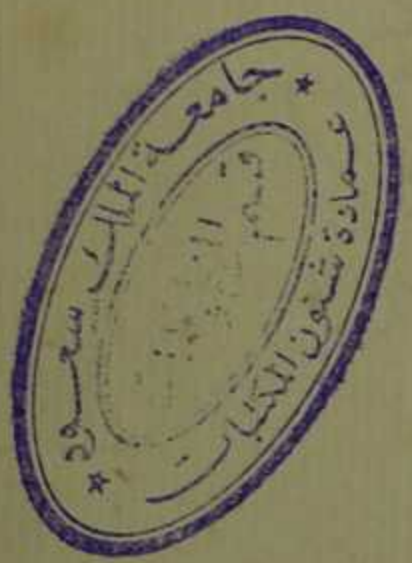 جامعة الملك سعود
عمادة شئون المكتبات
قسم